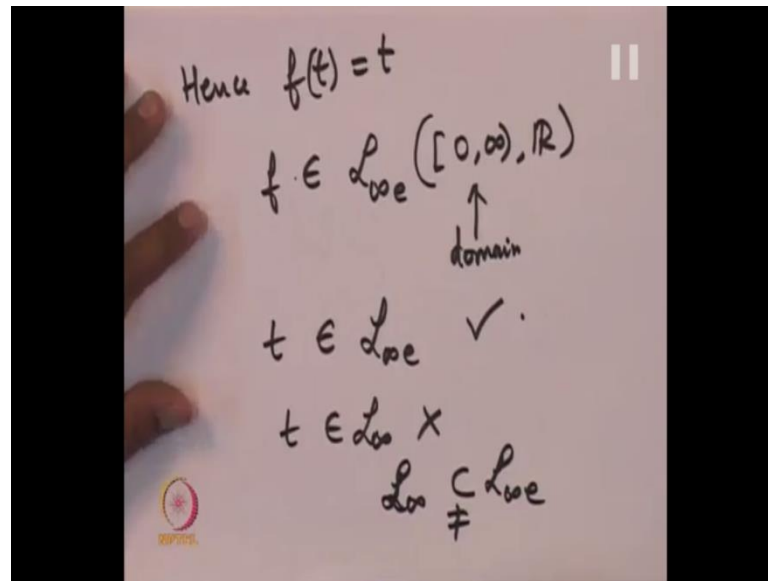 Hence f(t) = t
f ∈ ℒ∞e ([0,∞), ℝ)
↑
domain
t ∈ ℒ∞e ✓.
t ∈ ℒ∞ ×
ℒ∞ ⊊ ℒ∞e
NPTEL